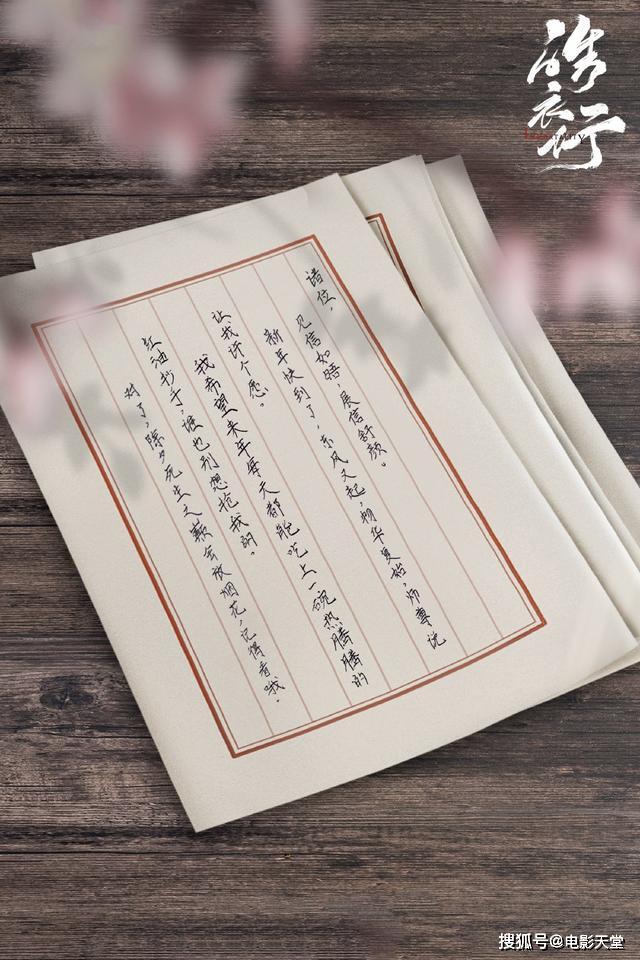 皓衣行
诸位，
见信如晤，展信舒颜。
新年快到了，东风又起，物华复始，师尊说
让我许个愿。
我希望来年每天都能吃上一碗热腾腾的
红油抄手，谁也别想抢我的。
对了，除夕死生之巅会放烟花，记得看哦。
搜狐号@电影天堂